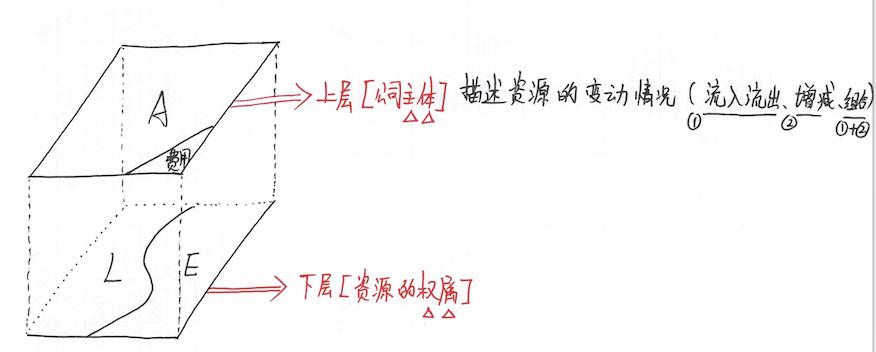 A
费用
上层[公司主体] 描述资源的变动情况(流入流出、增减、组合)
① ② ①+②
L E
下层[资源的权属]